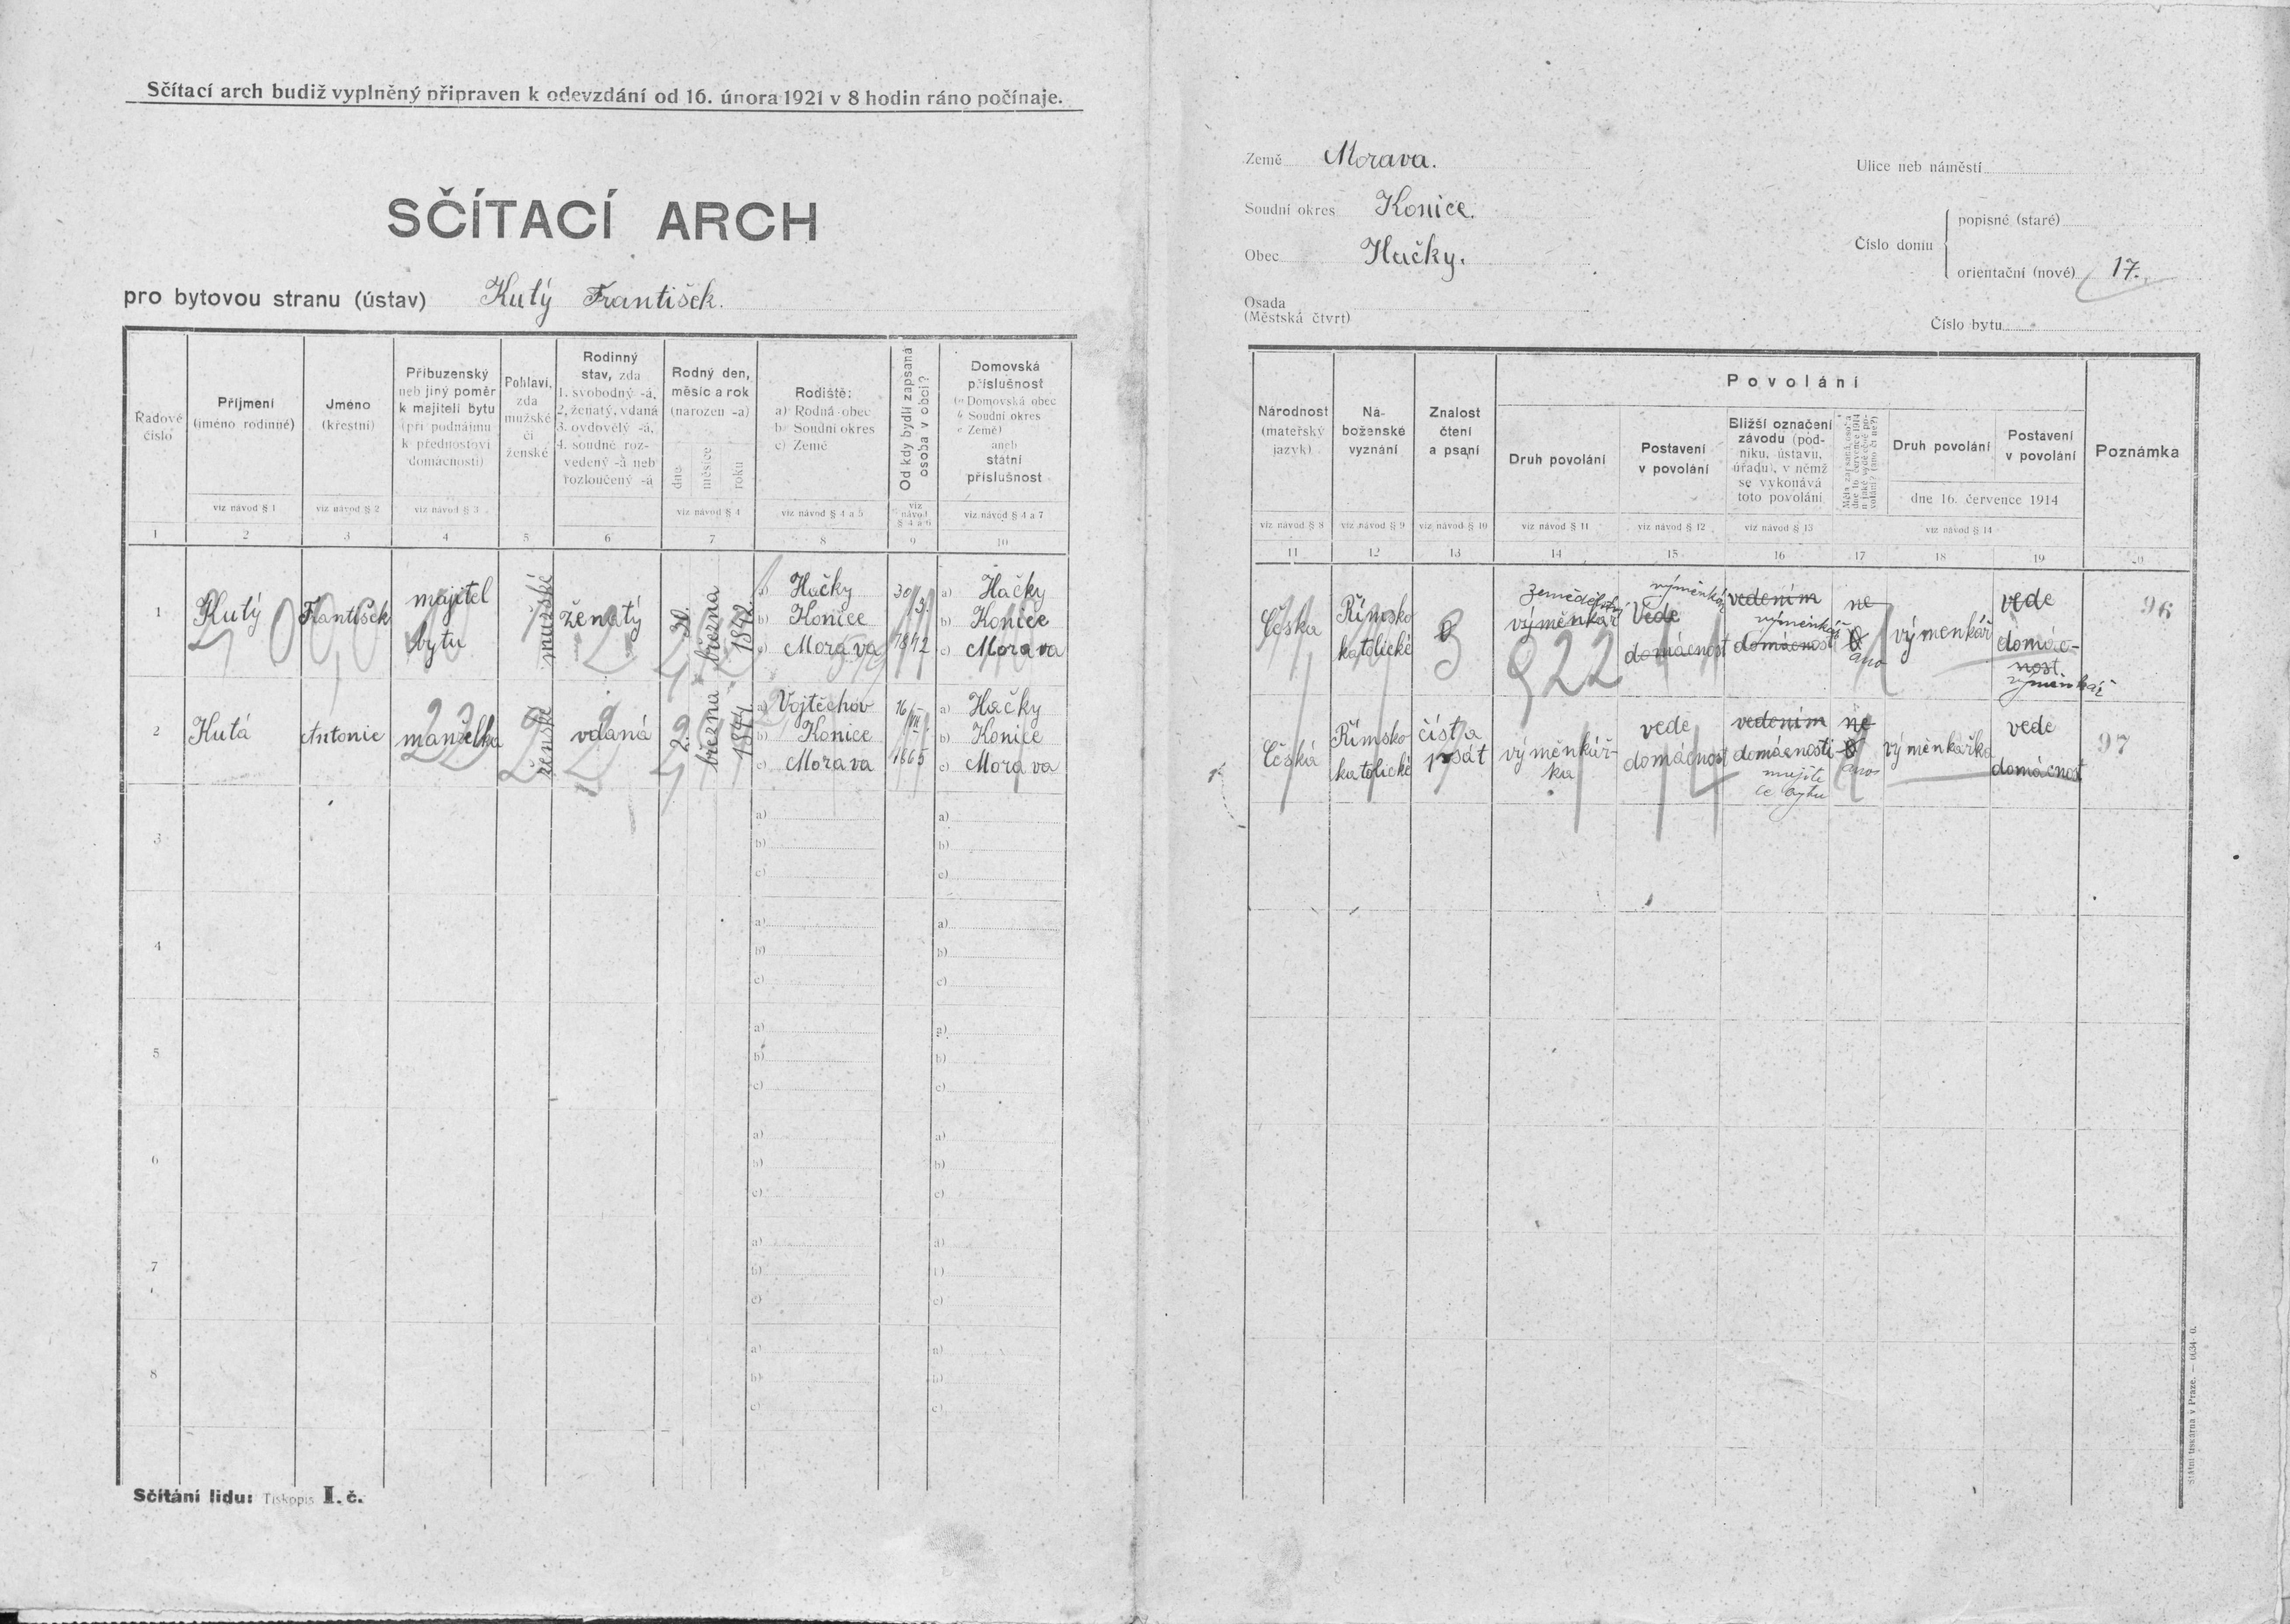 Sčítací arch budiž vyplněný připraven k odevzdání od 16. února 1921 v 8 hodin ráno počínaje.
SČÍTACÍ ARCH
pro bytovou stranu (ústav) Kutý František.
Země Morava.
Soudní okres Konice.
Obec Hačky.
Osada
(Městská čtvrt)
Ulice neb náměstí
Číslo domu
popisné (staré)
orientační (nové) 17.
Číslo bytu
Řadové číslo
Příjmení (jméno rodinné)
Jméno (křestní)
Příbuzenský neb jiný poměr k majiteli bytu (při podnájmu k přednostovi domácnosti)
Pohlaví, zda mužské či ženské
Rodinný stav, zda 1. svobodný -á, 2. ženatý, vdaná 3. ovdovělý -á, 4. soudně rozvedený -á neb rozloučený -á
Rodný den, měsíc a rok (narozen -a)
dne měsíce roku
Rodiště: a) Rodná obec b) Soudní okres c) Země
Od kdy bydlí zapsaná osoba v obci?
Domovská příslušnost (a Domovská obec b Soudní okres c Země) aneb státní příslušnost
viz návod § 1
viz návod § 2
viz návod § 3
viz návod § 4
viz návod § 4 a 5
viz návod § 4 a 6
viz návod § 4 a 7
1 2 3 4 5 6 7 8 9 10
1 Kutý František majitel bytu mužské ženatý 30. března 1842 a) Hačky b) Konice c) Morava 30/3. 1842 a) Hačky b) Konice c) Morava
2 Kutá Antonie manželka ženské vdaná 2. března 1844 a) Vojtěchov b) Konice c) Morava 16/VII. 1865 a) Hačky b) Konice c) Morava
3 a) b) c) a) b) c)
4 a) b) c) a) b) c)
5 a) b) c) a) b) c)
6 a) b) c) a) b) c)
7 a) b) c) a) b) c)
8 a) b) c) a) b) c)
Sčítání lidu: Tiskopis I. č.
Národnost (mateřský jazyk)
Náboženské vyznání
Znalost čtení a psaní
Povolání
Druh povolání
Postavení v povolání
Bližší označení závodu (podniku, ústavu, úřadu), v němž se vykonává toto povolání
Druh povolání
Postavení v povolání
dne 16. července 1914
Poznámka
viz návod § 8
viz návod § 9
viz návod § 10
viz návod § 11
viz návod § 12
viz návod § 13
viz návod § 14
11 12 13 14 15 16 17 18 19
Česka Římsko katolické 0 zemědělství výměnkář výměnkář Vede domácnost vedením výměnkář domácnost ne 0 ano výmenkář vede domácnost výměnkář 96
822
Česká Římsko katolické číst a psát výměnkářka vede domácnost vedením domácnosti majite le bytu ne 0 ano výměnkářka vede domácnost 97
Státní tiskárna v Praze. — 0634 0.